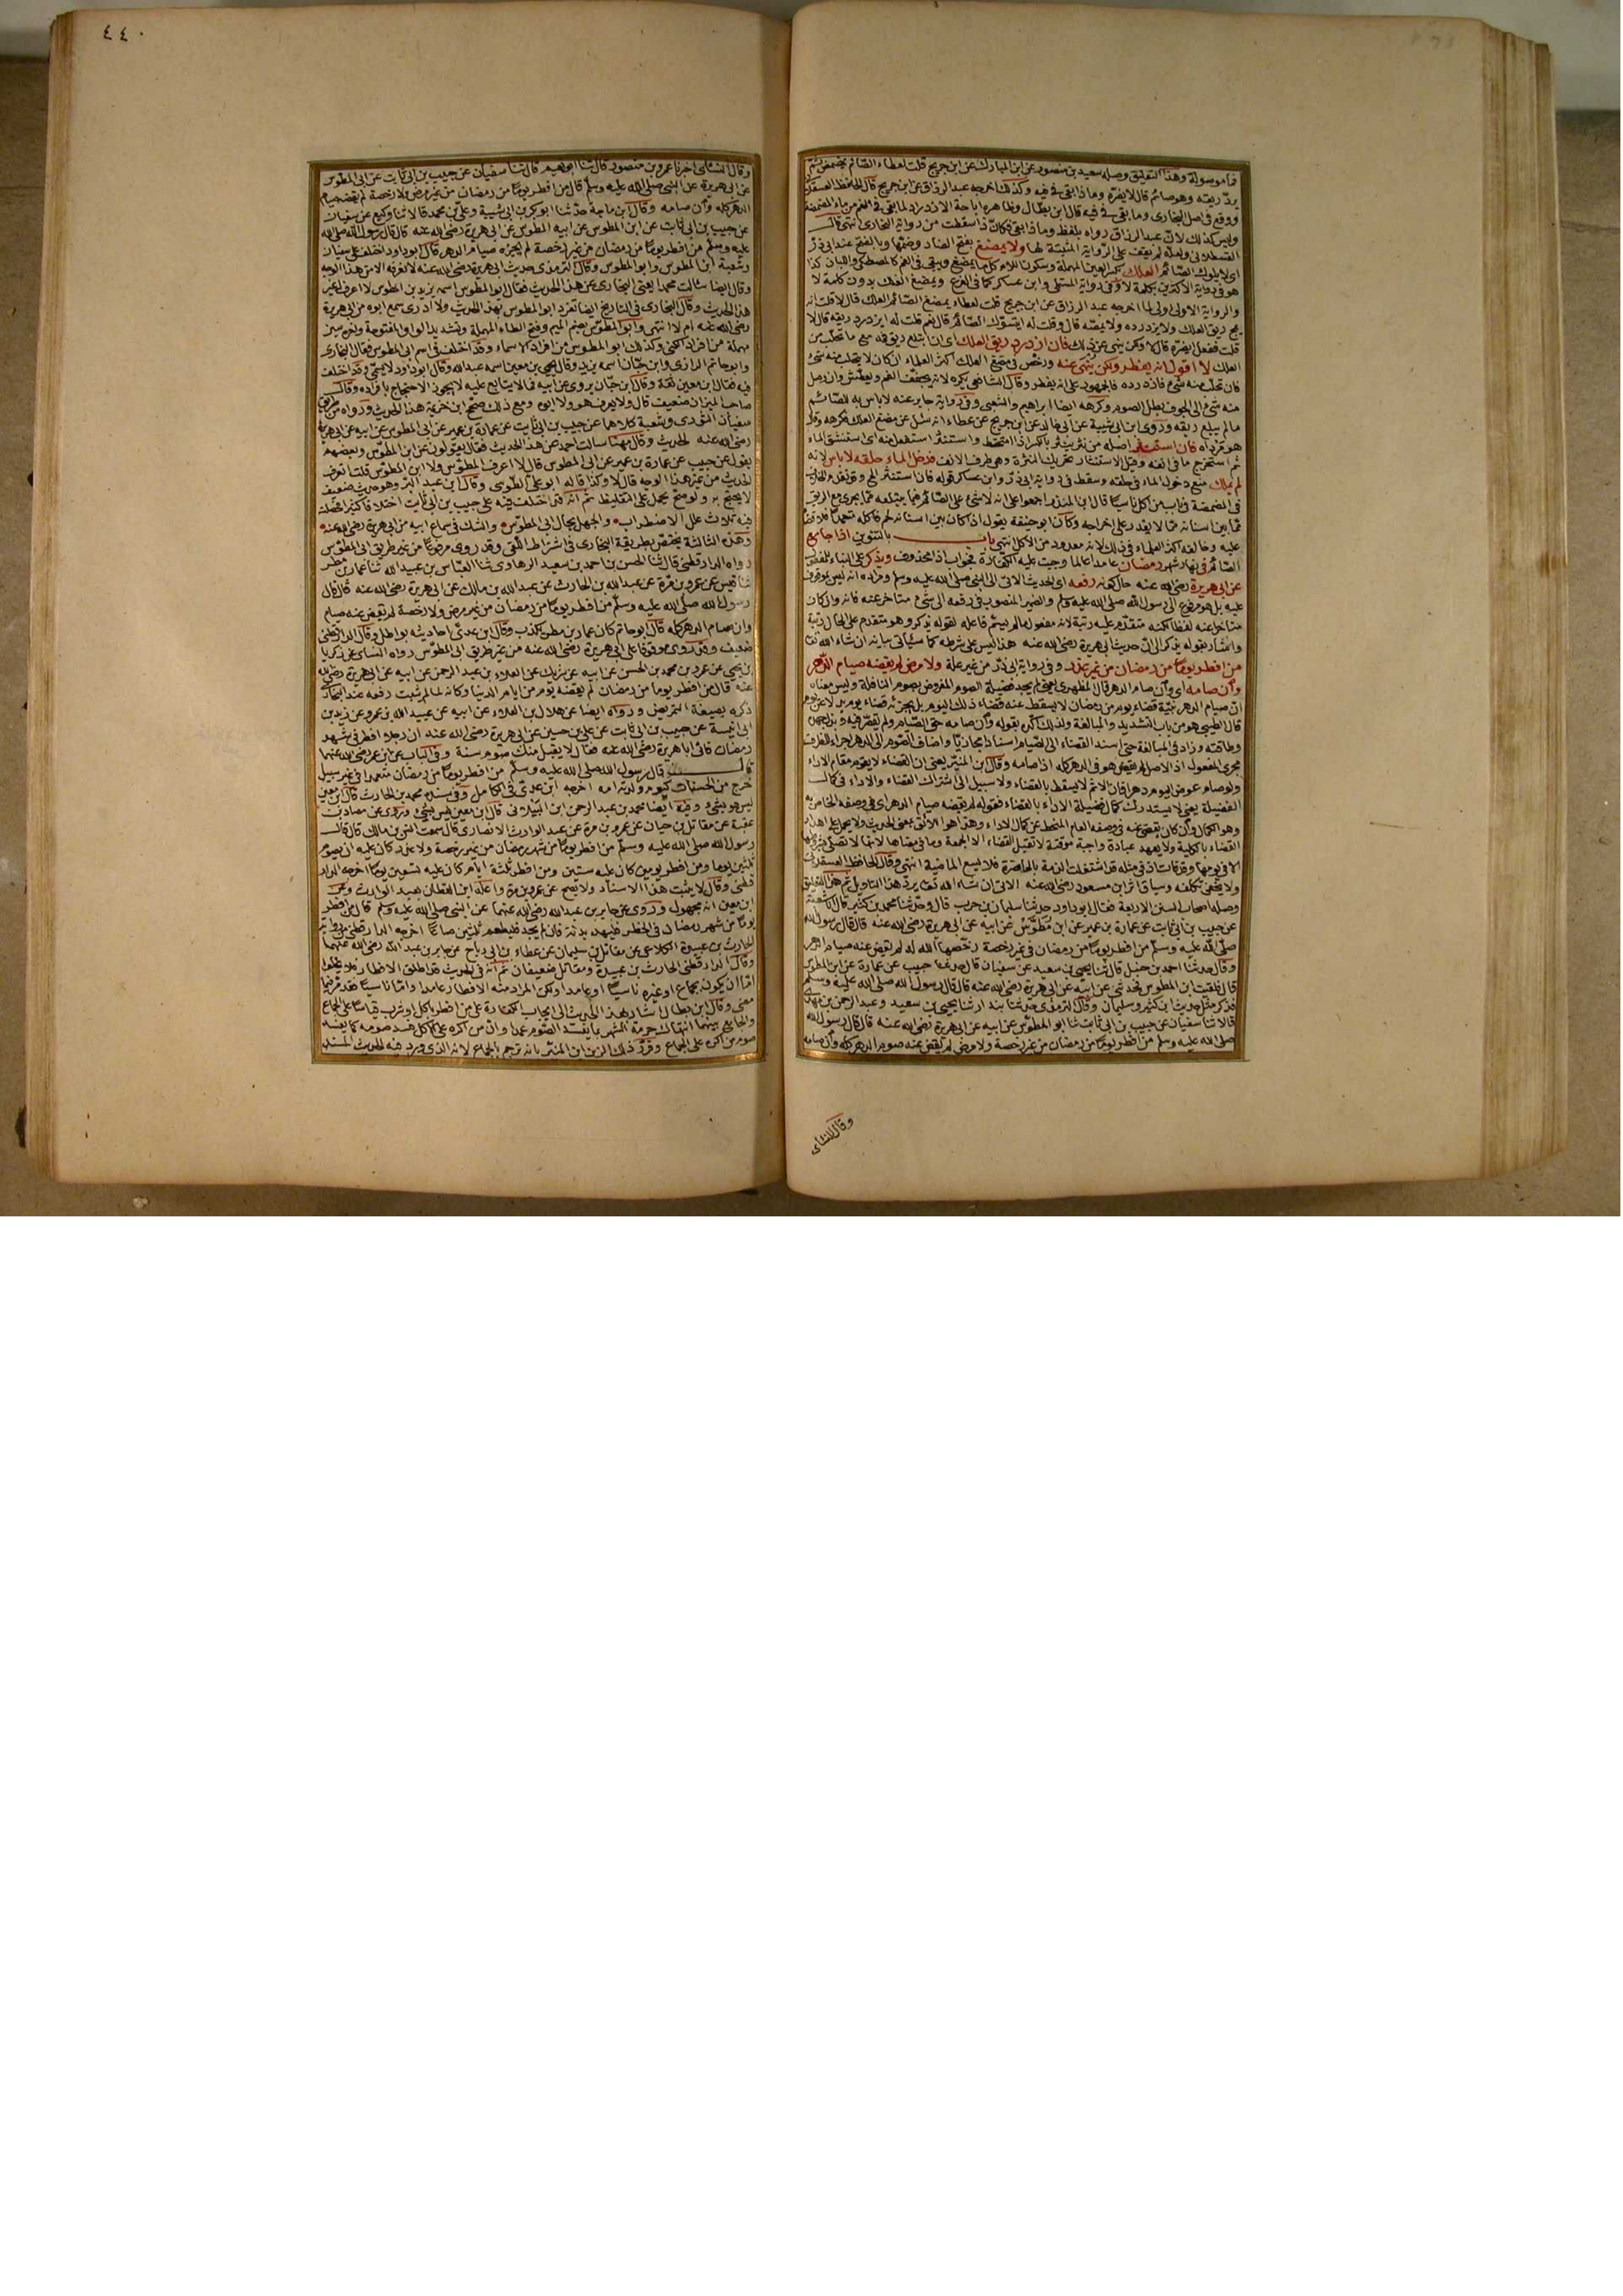 فما موصولة وهذا التعليق وصله سعيد بن منصور عن ابن المبارك عن ابن جريج قلت لعطاء الصائم يمضمض ثم
يزدرد ريقه وهو صائم قال لا يضره وماذا بقى فى فيه وكذلك اخرجه عبد الرزاق عن ابن جريج قال الحافظ العسقلانى
ووقع فى اصل البخارى وما بقى فى فيه قال ابن بطال وظاهره اباحة الازدراد لما بقى فى الفم من ماء المضمضة
وليس كذلك لان عبد الرزاق رواه بلفظ وماذا بقى فكأن ذا سقطت من رواية البخارى انتهى قال
القسطلانى ولعله لم يقف على الرواية المثبتة لها ولا يمضغ بفتح الضاد وضمها وبالفتح عند ابى ذر
اى لا يلوك الصائم العلك بكسر العين المهملة وسكون اللام كل ما يمضغ ويبقى فى الفم كالمصطكى واللبان كذا
هو فى رواية الاكثرين بكلمة لا وفى رواية المستملى وابن عساكر كما فى الفرع ويمضغ العلك بدون كلمة لا
والرواية الاولى اولى لما اخرجه عبد الرزاق عن ابن جريج قلت لعطاء يمضغ الصائم العلك قال لا قلت انه
يمج ريق العلك ولا يزدرده ولا يمصه قال وقلت له ايتسوك الصائم قال نعم قلت له ايزدرد ريقه قال لا
قلت ففعل ايضره قال لا ولكن ينهى عن ذلك فان ازدرد ريق العلك اى ان ابتلع ريق فمه مع ما تحلب من
العلك لا اقول انه يفطر ولكن ينهى عنه ورخص فى مضغ العلك اكثر العلماء ان كان لا يتحلب منه شىء
فان تحلب منه شىء فازدرده فالجمهور على انه يفطر وقال الشافعى يكره لانه يجفف الفم ويعطش وان وصل
منه شىء الى الجوف بطل الصوم وكرهه ايضا ابراهيم والشعبى وفى رواية جابر عنه لا باس به للصائم
ما لم يبلع ريقه وروى ابن ابى شيبة عن ابى خالد عن ابن جريج عن عطاء انه سئل عن مضغ العلك فكرهه وقال
هو مرداة فان استنثر اصله من نثر ينثر بالكسر اذا امتخط واستنثر استفعل منه اى استنشق الماء
ثم استخرج ما فى انفه وقيل الاستنثار تحريك النثرة وهى طرف الانف فدخل الماء حلقه لا باس لانه
لم يملك منع دخول الماء فى حلقه وسقط فى رواية ابى ذر وابن عساكر قوله فان استنثر الخ
عليه وخالفه اكثر العلماء فى ذلك لانه معدود من الاكل انتهى باب بالتنوين اذا جامع
الصائم فى نهار شهر رمضان عامدا عالما وجبت عليه الكفارة فجواب اذا محذوف ويذكر على البناء للمفعول
عن ابى هريرة رضى الله عنه حال كونه رفعه اى الحديث الآتى الى النبى صلى الله عليه وسلم ومراده انه ليس بموقوف
عليه بل هو مرفوع الى رسول الله صلى الله عليه وسلم والضمير المنصوب فى رفعه الى شىء متاخر عنه فانه وان كان
متاخرا عنه لفظا لكنه متقدم عليه رتبة لانه مفعول ما لم يسم فاعله لقوله يذكر وهو متقدم على الحال رتبة
واشار بقوله يذكر الى ان حديث ابى هريرة رضى الله عنه هذا ليس على شرطه كما سيأتى بيانه ان شاء الله تعالى
من افطر يوما من رمضان من غير عذر وفى رواية ابى ذر من غير علة ولا مرض لم يقضه صيام الدهر
وان صامه اى وان صام الدهر قال المظهرى يعنى لم يجد فضيلة الصوم المفروض بصوم النافلة وليس معناه
ان صيام الدهر بنية قضاء يوم من رمضان لا يسقط عنه قضاء ذلك اليوم بل يجزئه قضاء يوم بدلا عن يوم
قال الطيبى هو من باب التشديد والمبالغة ولذلك اكده بقوله وان صامه حق الصيام ولم يقصر فيه وبذل جهده
وطاقته وزاد فى المبالغة حيث اسند القضاء الى الصيام اسنادا مجازيا واضاف الصوم الى الدهر اجراء للظرف
مجرى المفعول اذ الاصل لم يقض هو فى الدهر كله اذا صامه وقال ابن المنير يعنى ان القضاء لا يقوم مقام الاداء
ولو صام عوض اليوم دهرا فان الاثم لا يسقط بالقضاء ولا سبيل الى اشتراك القضاء والاداء فى كمال
الفضيلة يعنى لا يستدرك كمال فضيلة الاداء بالقضاء فقوله لم يقضه صيام الدهر اى فى وصفه الخاص به
وهو الكمال وان كان يقضى عنه فى وصفه العام المنحط عن كمال الاداء وهذا هو الاليق بمعنى الحديث ولا يحمل على اهدار
القضاء بالكلية ولا يعهد عبادة واجبة موقتة لا تقبل القضاء الا الجمعة وما فى معناها لانها لا
ولا يخفى تكلفه وسياق اثر ابن مسعود رضى الله عنه الاتى ان شاء الله تعالى يرد هذا التاويل ثم هذا التعليق
وصله اصحاب السنن الاربعة فقال ابو داود حدثنا سليمان بن حرب قال وحدثنا محمد بن كثير قال انا شعبة
عن حبيب بن ابى ثابت عن عمارة بن عمير عن ابن مطوس عن ابيه عن ابى هريرة رضى الله عنه قال قال رسول الله
صلى الله عليه وسلم من افطر يوما من رمضان فى غير رخصة رخصها الله له لم يقض عنه صيام الدهر
وقال حدثنا احمد بن حنبل قال ثنا يحيى بن سعيد عن سفيان قال حدثنا حبيب عن عمارة عن ابن المطوس
قال فلقيت ابن المطوس فحدثنى عن ابيه عن ابى هريرة رضى الله عنه قال قال رسول الله صلى الله عليه وسلم
فذكر مثل حديث ابن كثير وسليمان وقال الترمذى حدثنا بندار ثنا يحيى بن سعيد وعبد الرحمن بن مهدى
قالا ثنا سفيان عن حبيب بن ابى ثابت ثنا ابو المطوس عن ابيه عن ابى هريرة رضى الله عنه قال قال رسول الله
صلى الله عليه وسلم من افطر يوما من رمضان من غير رخصة ولا مرض لم يقض عنه صوم الدهر كله وان صامه
وقال النسائى
٤٤٠
وقال النسائى اخبرنا عمرو بن منصور قال ثنا ابو نعيم قال ثنا سفيان عن حبيب بن ابى ثابت عن ابى المطوس
عن ابى هريرة عن النبى صلى الله عليه وسلم قال من افطر يوما من رمضان من غير مرض ولا رخصة لم يقضه صيام
الدهر كله وان صامه وقال ابن ماجة حدثنا ابو بكر بن ابى شيبة وعلى بن محمد قالا ثنا وكيع عن سفيان
عن حبيب بن ابى ثابت عن ابن المطوس عن ابيه المطوس عن ابى هريرة رضى الله عنه قال قال رسول الله صلى الله
عليه وسلم من افطر يوما من رمضان من غير رخصة لم يجزه صيام الدهر قال ابو داود اختلف على سفيان
وشعبة ابن المطوس وابو المطوس وقال الترمذى حديث ابى هريرة رضى الله عنه لا نعرفه الا من هذا الوجه
وقال ايضا سالت محمدا يعنى البخارى عن هذا الحديث فقال ابو المطوس اسمه يزيد بن المطوس لا اعرف له غير
هذا الحديث وقال البخارى فى التاريخ ايضا تفرد ابو المطوس بهذا الحديث ولا ادرى سمع ابوه من ابى هريرة
رضى الله عنه ام لا انتهى وابو المطوس بضم الميم وفتح الطاء المهملة وتشديد الواو المفتوحة واخره سين
مهملة من افراد الكنى وكذلك ابو المطوس من افراد الاسماء وقد اختلف فى اسم ابى المطوس فقال البخارى
وابو حاتم الرازى وابن حبان اسمه يزيد وقال يحيى بن معين اسمه عبد الله وقال ابو داود لا يسمى وقد اختلف
فيه فقال ابن معين ثقة وقال ابن حبان يروى عن ابيه ما لا يتابع عليه لا يجوز الاحتجاج بافراده وقال
صاحب الميزان ضعيف قال ولا يعرف هو ولا ابوه ومع ذلك صحح ابن خزيمة هذا الحديث ورواه من طريق
سفيان الثورى وشعبة كلاهما عن حبيب بن ابى ثابت عن عمارة بن عمير عن ابى المطوس عن ابيه عن ابى هريرة
رضى الله عنه الحديث وقال مهنا سالت احمد عن هذا الحديث فقال يقولون عن ابن المطوس وبعضهم
يقول عن حبيب عن عمارة بن عمير عن ابى المطوس قال لا اعرف المطوس ولا ابن المطوس قلت اتعرف
الحديث من غير هذا الوجه قال لا وكذا قاله ابو على الطوسى وقال ابن عبد البر وهو حديث ضعيف
لا يحتج به ولو صح يحمل على التغليظ ثم انه قد اختلف فيه على حبيب بن ابى ثابت اختلافا كثيرا فحصلت
فيه ثلاث علل الاضطراب والجهل بحال ابى المطوس والشك فى سماع ابيه من ابى هريرة رضى الله عنه
وهذه الثالثة تختص بطريقة البخارى فى اشتراط اللقى وقد روى مرفوعا من غير طريق ابى المطوس
رواه الدارقطنى قال ثنا الحسن بن احمد بن سعيد الرهاوى ثنا العباس بن عبيد الله ثنا عمار بن مطر
ثنا قيس عن عمرو بن مرة عن عبد الله بن الحارث عن عبد الله بن مالك عن ابى هريرة رضى الله عنه قال قال
رسول الله صلى الله عليه وسلم من افطر يوما من رمضان من غير مرض ولا رخصة لم يقض عنه صيام
وان صام الدهر كله قال ابو حاتم كان عمار بن مطر يكذب وقال ابن عدى احاديثه بواطل وقال الدارقطنى
ضعيف وقد روى موقوفا على ابى هريرة رضى الله عنه من غير طريق ابى المطوس رواه النسائى عن زكريا
بن يحيى عن عمرو بن محمد بن الحسن عن ابيه عن شريك عن العلاء بن عبد الرحمن عن ابيه عن ابى هريرة رضى الله
عنه قال من افطر يوما من رمضان لم يقضه يوم من ايام الدنيا وكأنه لما لم يثبت رفعه عند البخارى
ذكره بصيغة التمريض ورواه ايضا عن هلال بن العلاء عن ابيه عن عبيد الله بن عمرو عن زيد بن
ابى انيسة عن حبيب بن ابى ثابت عن على بن حسين عن ابى هريرة رضى الله عنه ان رجلا افطر فى شهر
رمضان فاتى ابا هريرة رضى الله عنه فقال لا يقبل منك صوم سنة وفى الباب عن ابن عمر رضى الله عنهما
قال قال رسول الله صلى الله عليه وسلم من افطر يوما من رمضان متعمدا فى غير سبيل
خرج من الحسنات كيوم ولدته امه اخرجه ابن عدى فى الكامل وفى سنده محمد بن الحارث قال ابن معين
ليس هو بشىء وفيه ايضا محمد بن عبد الرحمن ابن البيلمانى قال ابن معين ليس بشىء وروى عن مصاد بن
عقبة عن مقاتل بن حيان عن عمرو بن مرة عن عبد الوارث الانصارى قال سمعت انس بن مالك قال قال
رسول الله صلى الله عليه وسلم من افطر يوما من شهر رمضان من غير رخصة ولا عذر كان عليه ان يصوم
ثلثين يوما ومن افطر يومين كان عليه ستين ومن افطر ثلثة ايام كان عليه تسعين يوما اخرجه الدار
قطنى وقال لا يثبت هذا الاسناد ولا يصح عن عمرو بن مرة واعله ابن القطان بعبد الوارث وعن
ابن معين انه مجهول وروى عن جابر بن عبد الله رضى الله عنهما عن النبى صلى الله عليه وسلم قال من افطر
يوما من شهر رمضان فى الحضر فليهد بدنة فان لم يجد فليطعم ثلثين صاعا اخرجه الدارقطنى من رواية
الحارث بن عبيدة الكلاعى عن مقاتل بن سليمان عن عطاء بن ابى رباح عن جابر بن عبد الله رضى الله عنهما
وقال الدارقطنى الحارث بن عبيدة ومقاتل ضعيفان ثم انه فى الحديث قد اطلق الافطار فلا يخلو
اما ان يكون بجماع او غيره ناسيا او عامدا ولكن المراد منه الافطار عامدا واما ناسيا
معنى وقال ابن بطال اشار بهذا الحديث الى ايجاب الكفارة على من افطر باكل او شرب قياسا على الجماع
والجامع بينهما انتهاك حرمة الشهر بما يفسد الصوم عمدا وان من اكره على الاكل فسد صومه كما يفسد
صوم من اكره على الجماع وقرر ذلك الزين ابن المنير بانه ترجم بالجماع لانه الذى ورد فيه الحديث المسند